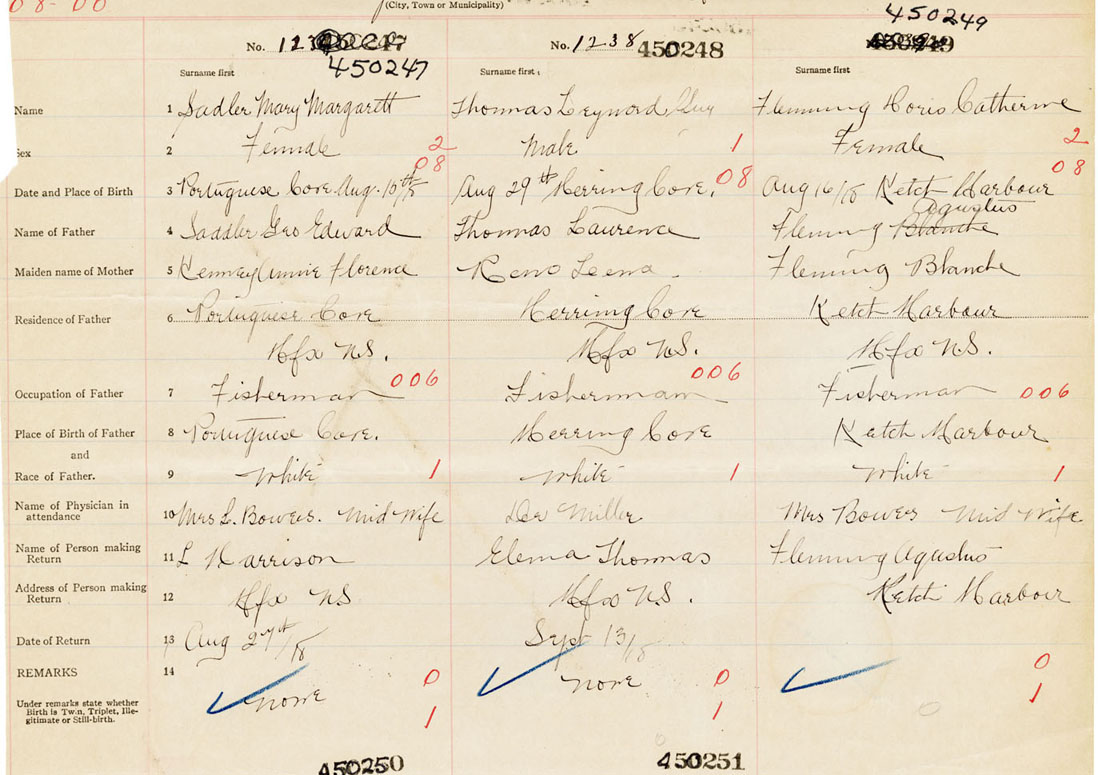 08-00
(City, Town or Municipality)
450249
No. 123
No. 1238 450248
450247
Surname first Surname first Surname first
Name 1 Sadler Mary Margarett Thomas Leynord Fleming Doris Catherine
Sex 2 Female 2 Male 1 Female 2
08 08
Date and Place of Birth 3 Portuguese Cove Aug. 10th/18 Aug 29th Herring Cove. 08 Aug 16/18 Ketch Harbour
Agustus
Name of Father 4 Saddler Geo Edward Thomas Laurence Fleming Blanche
Maiden name of Mother 5 Kenney Annie Florence Reno Leena. Fleming Blanche
Residence of Father 6 Portuguese Cove Herring Cove Ketch Harbour
Hfx N.S. Hfx N.S. Hfx N.S.
006 006
Occupation of Father 7 Fisherman Fisherman Fisherman 006
Place of Birth of Father 8 Portuguese Cove. Herring Cove Ketch Harbour
and
Race of Father. 9 White 1 White 1 White 1
Name of Physician in
attendance 10 Mrs L. Bowers. Mid Wife Miller Mrs Bowers Mid Wife
Name of Person making
Return 11 L Harrison Elema Thomas Fleming Agustus
Address of Person making
Return 12 Hfx N.S Hfx N.S. Ketch Harbour
Date of Return 13 Aug 27th/18 Sept 13/18
REMARKS 14 0 0 0
none none
Under remarks state whether
Birth is Twin, Triplet, Ille-
gitimate or Still-birth. 1 1 1
450250 450251